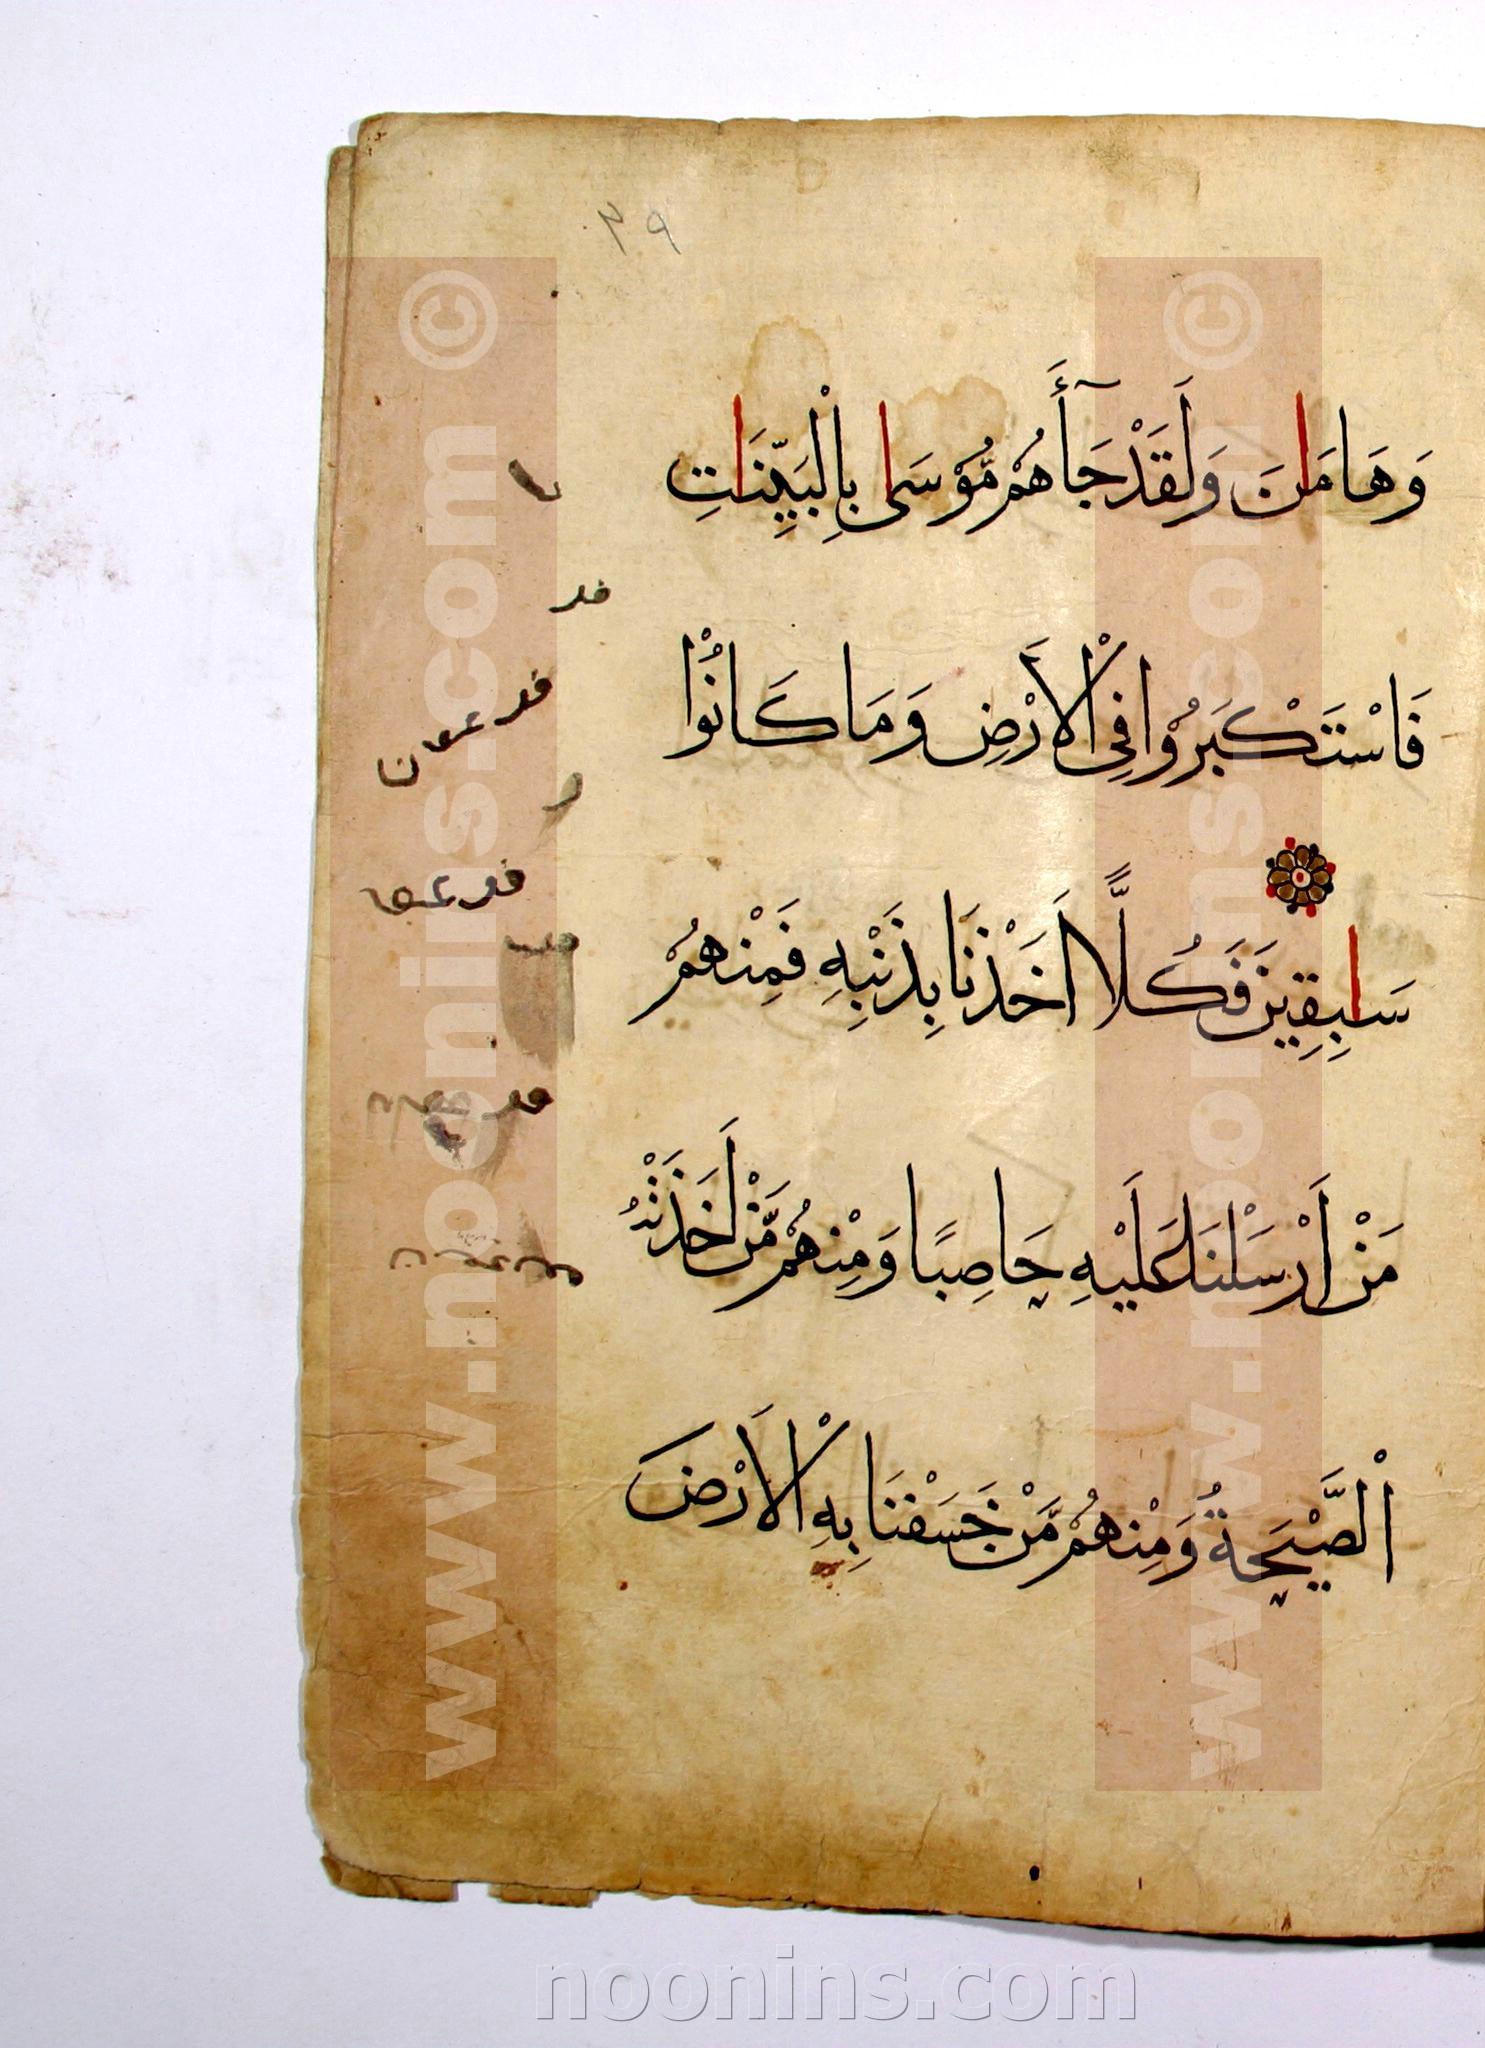 ٣٩
وَهَامَانَ وَلَقَدْ جَآأَهُمْ مُّوْسَى بِاْلْبَيِّنَاتِ
فَاسْتَكْبَرُوْا فِى اْلاَرْضِ وَمَا كَانُوْا
سَابِقِينَ فَكُلًّا اَخَذْنَا بِذَنْبِهِ فَمِنْهُمْ
مَنْ اَرْسَلْنَا عَلَيْهِ حَاصِبًا وَمِنْهُمْ مَّنْ اَخَذَتْهُ
اْلصَّيْحَةُ وَمِنْهُمْ مَّنْ خَسَفْنَا بِهِ اْلاَرْضَ
www.noonins.com ©
www.noonins.com ©
noonins.com